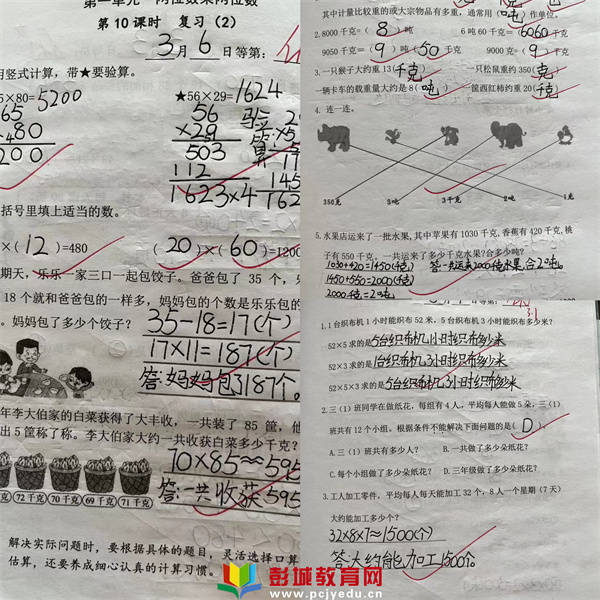 第10课时 复习（2）
3月6日 等第：
用竖式计算，带★要验算。
5×80=5200
★56×29=1624
65
80
200
56
×29
503
112
1623×4
验算
括号里填上适当的数。
×(12)=480
(20)×(60)=1200
期天，乐乐一家三口一起包饺子。爸爸包了 35 个，
18 个就和爸爸包的一样多，妈妈包的个数是乐乐包的
。妈妈包了多少个饺子？
35-18=17(个)
17×11=187(个)
答:妈妈包了187个。
年李大伯家的白菜获得了大丰收，一共装了 85 筐，他
出 5 筐称了称。李大伯家大约一共收获白菜多少千克？
70×85≈595
答:一共收获595
72 千克 70 千克 69 千克 71 千克
解决实际问题时，要根据具体的题目，灵活选择口算
估算，还要养成细心认真的计算习惯。
其中计量比较重的或大宗物品有多重，通常用（吨）作单位。
2.8000 千克=（8）吨 6 吨 60 千克=6060千克
9050 千克=（9）吨（50）千克 9000 克=（9）千克
3.一只猴子大约重 13（千克） 一只松鼠重约 350（克）
一辆卡车的载重量大约是 8（吨） 一筐西红柿约重 20（千克）
4. 连一连。
350克 3吨 3千克 2吨 1克
5.水果店运来了一批水果,其中苹果有 1030 千克,香蕉有 420 千克,桃
子有 550 千克，一共运来了多少千克水果？合多少吨？
1030+420=1450(千克)
1450+550=2000(千克)
2000千克=2吨
答:一共运来2000千克水果,合2吨。
1.1 台织布机 1 小时能织布 52 米，5 台织布机 3 小时能织布多少米？
52×5 求的是5台织布机1小时织布多少米
52×3 求的是1台织布机3小时织布多少米
52×5×3 求的是5台织布机3小时织布多少米
2.三（1）班同学在做纸花，每组有 4 人，平均每人能做 5 朵，三（1）
班共有 12 个小组。根据条件不能解决下面问题的是（D）。
A.三（1）班共有多少人？ B.一共做了多少朵纸花？
C.每个小组做了多少朵纸花？ D.三年级做了多少朵纸花？
3.工人加工零件，平均每人每天能加工 32 个，8 人一个星期（7 天）
大约能加工多少个？
32×8×7≈1500(个)
答:大约能加工1500个。
彭城教育网
www.pcjyedu.cn